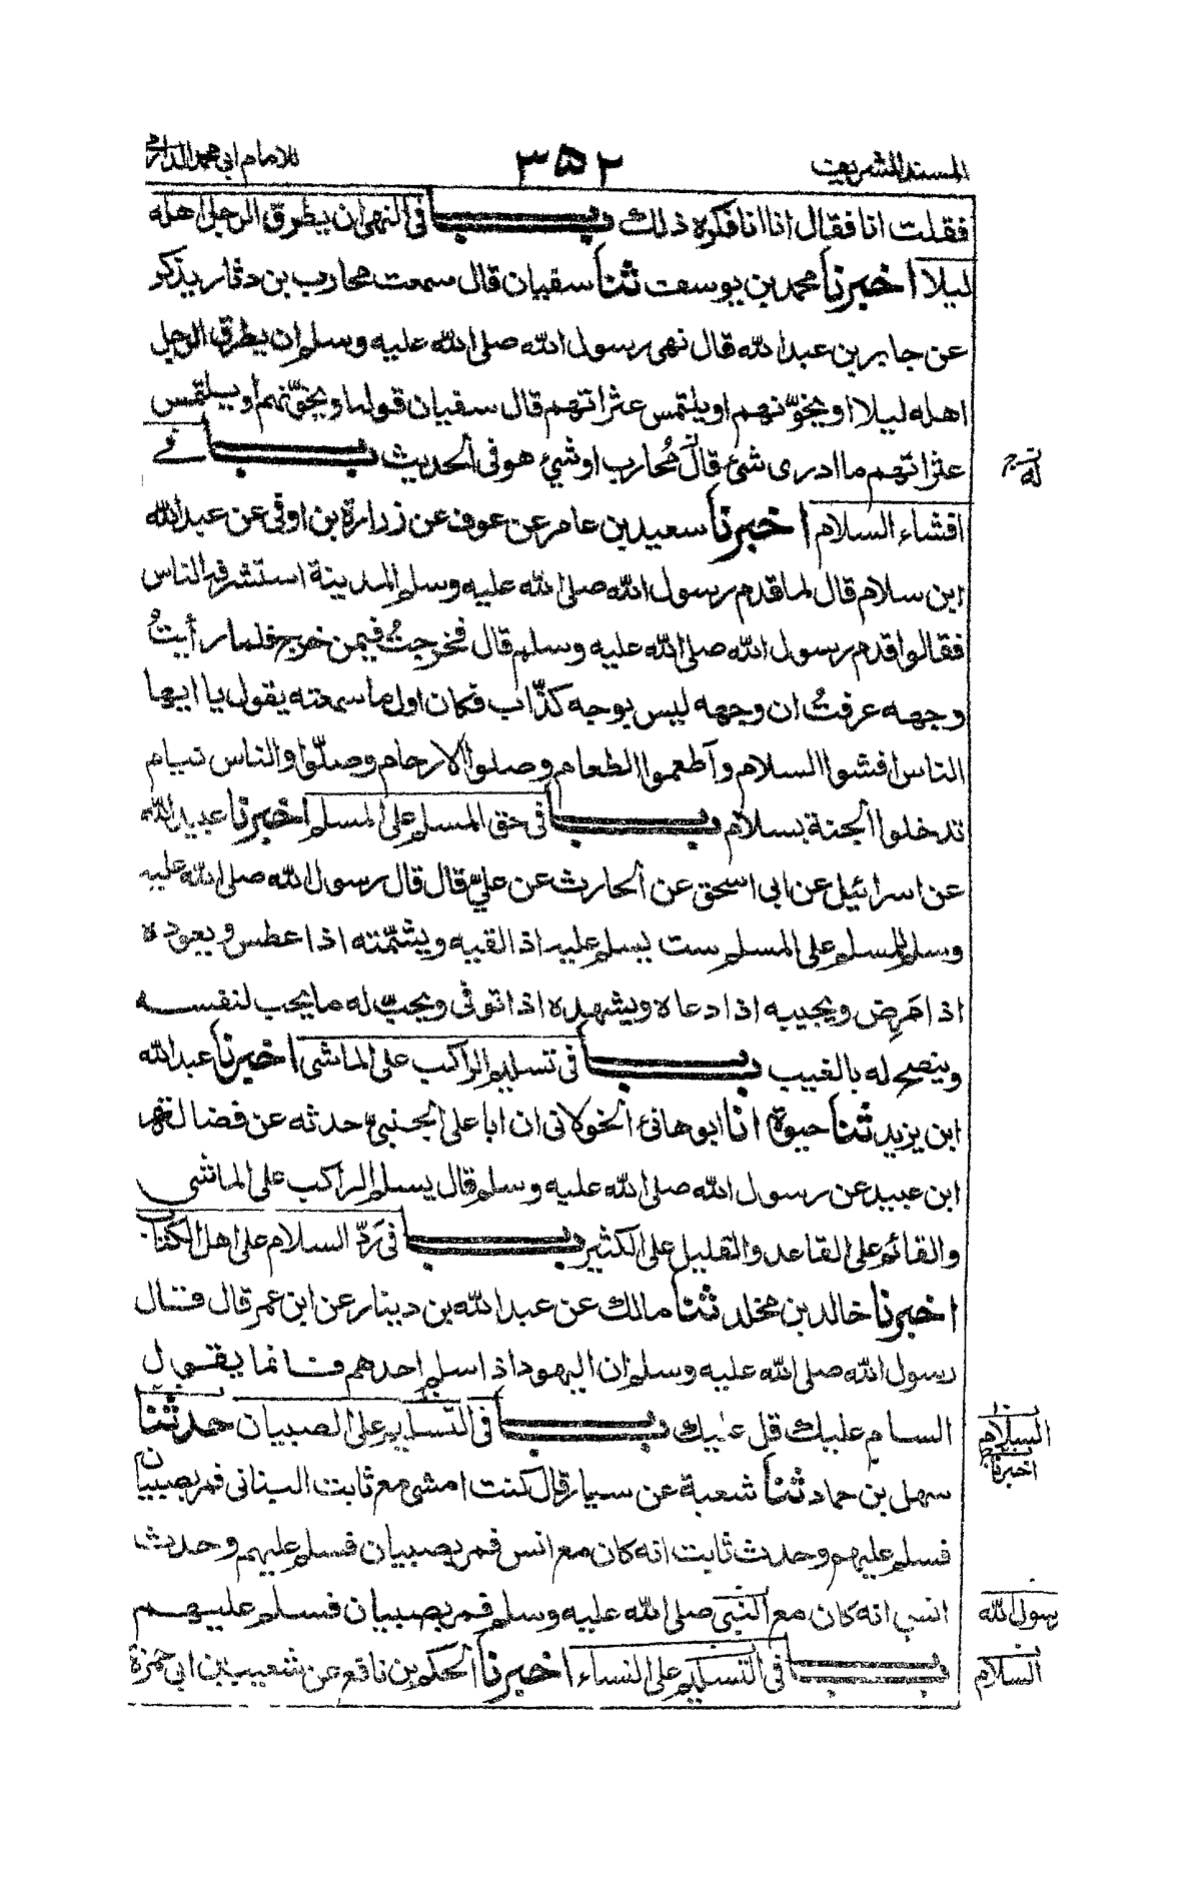 المسند الشريف ٣٥٢ للامام ابی محمد الدارمی
فقلت انا فقال انا انا فكره ذلك باب فی النهی ان يطرق الرجل اهله
ليلا اخبرنا محمد بن يوسف ثنا سفيان قال سمعت محارب بن دثار يذكر
عن جابر بن عبد الله قال نهی رسول الله صلی الله عليه وسلم ان يطرق الرجل
اهله ليلا او يخوّنهم او يلتمس عثراتهم قال سفيان قوله او يخوّنهم او يلتمس
عثراتهم ما ادری شئ قال مُحارب او شئ هو فی الحديث باب فے
له
افشاء السلام اخبرنا سعيد بن عامر عن عوف عن زرارة بن اوفی عن عبد الله
ابن سلام قال لما قدم رسول الله صلی الله عليه وسلم المدينة استشرفه الناس
فقالوا قدم رسول الله صلی الله عليه وسلم قال فخرجتُ فيمن خرج فلما رأيتُ
وجهه عرفتُ ان وجهه ليس بوجه كذّاب فكان اول ما سمعته يقول يا ايها
الناس افشوا السلام وأطعموا الطعام وصلوا الارحام وصلّوا والناس نيام
تدخلوا الجنة بسلام باب فی حق المسلم علی المسلم اخبرنا عبيد الله
عن اسرائيل عن ابی اسحق عن الحارث عن علیّ قال قال رسول الله صلی الله عليه
وسلم للمسلم علی المسلم ست يسلم عليه اذا لقيه ويشمّته اذا عطس ويعوده
اذا مَرِض ويجيبه اذا دعاه ويشهده اذا توفی ويحبّ له ما يحب لنفسه
وينصح له بالغيب باب فی تسليم الراكب علی الماشی اخبرنا عبد الله
ابن يزيد ثنا حيوة انا ابو هانئ الخولانی ان ابا علی الجنبیّ حدثه عن فضالة
ابن عبيد عن رسول الله صلی الله عليه وسلم قال يسلم الراكب علی الماشی
والقائم علی القاعد والقليل علی الكثير باب فی رَدّ السلام علی اهل الكتاب
اخبرنا خالد بن مخلد ثنا مالك عن عبد الله بن دينار عن ابن عمر قال قال
رسول الله صلی الله عليه وسلم ان اليهود اذا سلم احدهم فانما يقول
السام عليك قل عليك باب فی التسليم علی الصبيان حدثنا
السلام
اخبرنا
سهل بن حماد ثنا شعبة عن سيار قال كنت امشی مع ثابت البنانی فمر بصبيان
فسلم عليهم وحدث ثابت انه كان مع انس فمر بصبيان فسلم عليهم وحدث
انس انه كان مع النبی صلی الله عليه وسلم فمر بصبيان فسلم عليهم
رسول الله
باب فی التسليم علی النساء اخبرنا الحكم بن نافع عن شعيب بن ابی حمزة
السلام